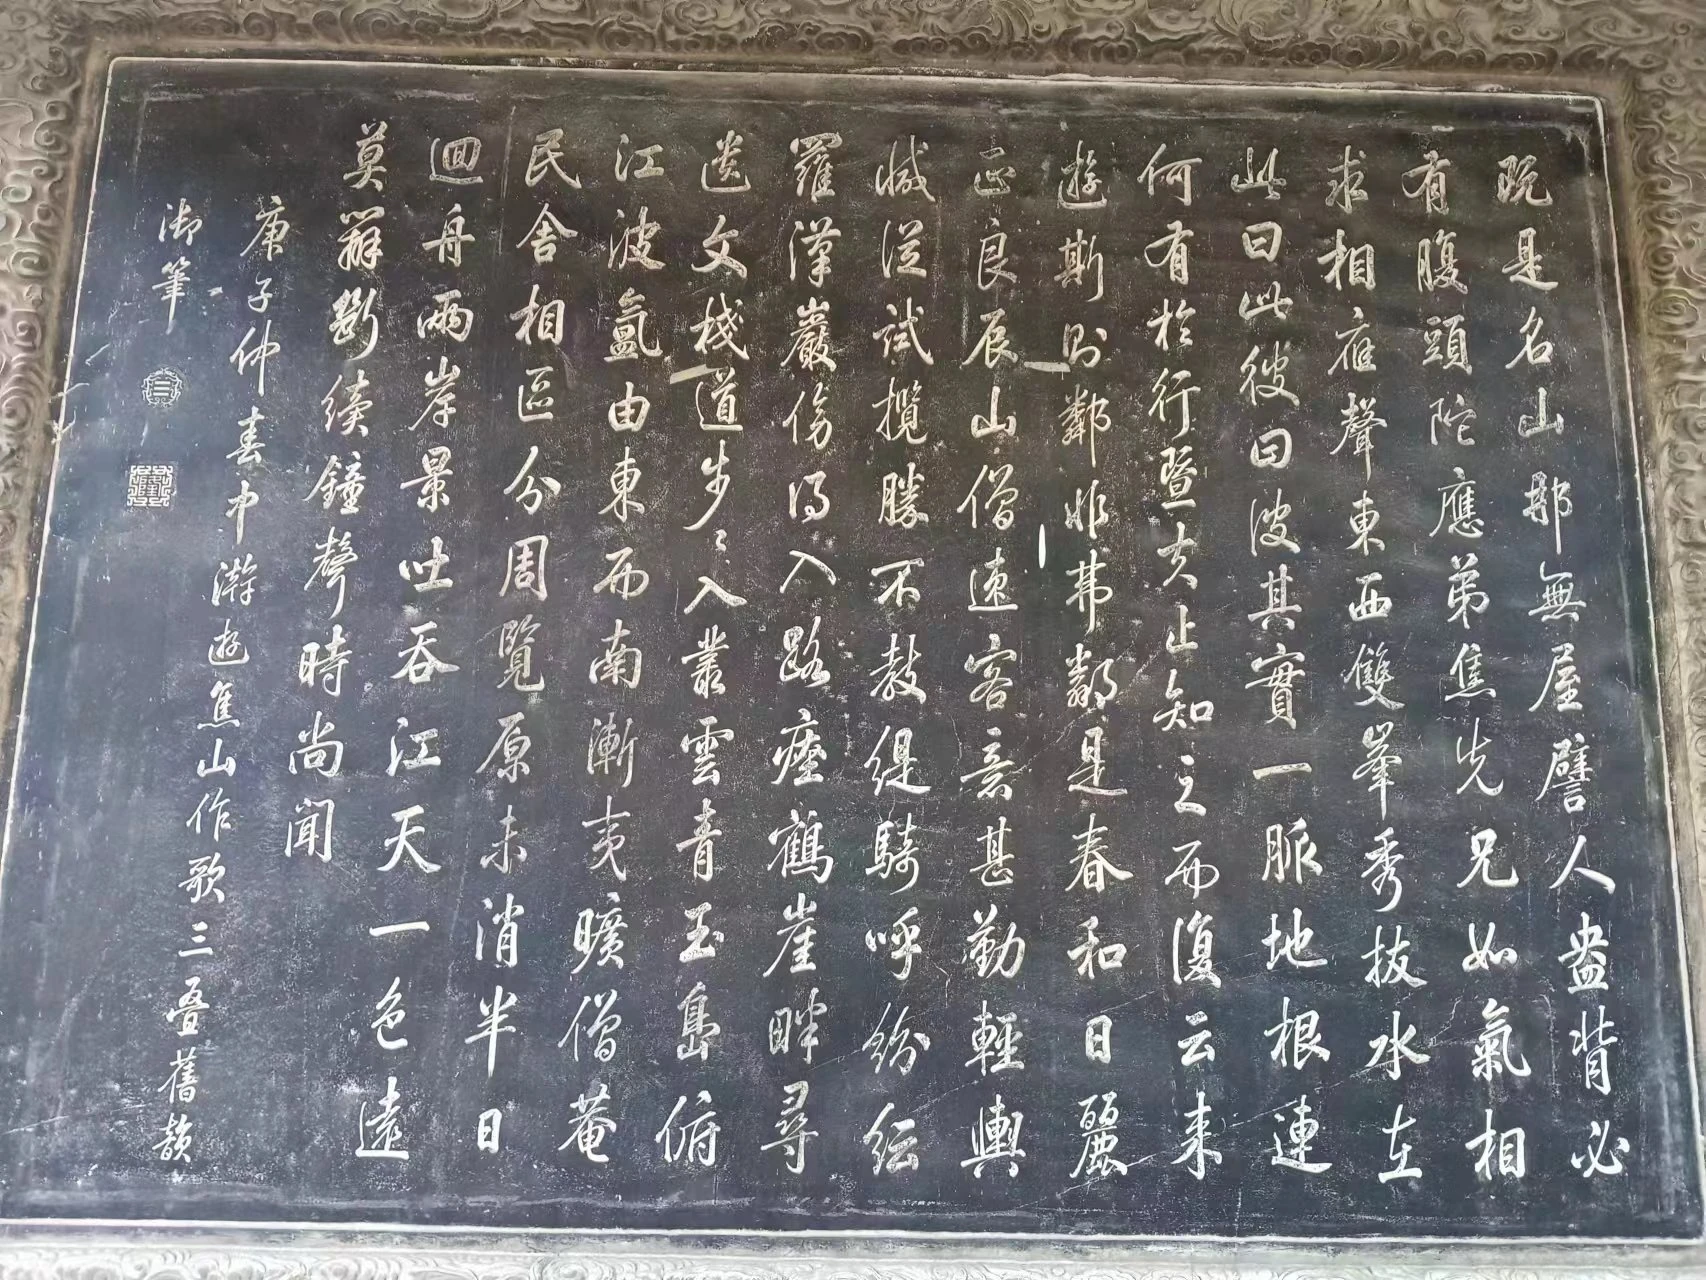 既是名山那無屋譬人盎背必
有腹頭陀應弟焦先兄如氣相
求相應聲東西雙峯秀拔水在
此曰此彼曰彼其實一脈地根連
何有於行暨夫止知之而復云来
遊斯則鄰非弗鄰是春和日麗
正良辰山僧速客意甚勤輕輿
減從試攬勝不教緹騎呼紛紜
羅漢巖傍得入路瘞鶴崖畔尋
遺文棧道步〻入叢雲青玉島俯
江波氳由東而南漸夷曠僧菴
民舍相區分周覽原未消半日
迴舟兩岸景吐吞江天一色遠
莫辨斷續鐘聲時尚聞
庚子仲春中澣遊焦山作歌三叠舊韻
御筆
☰